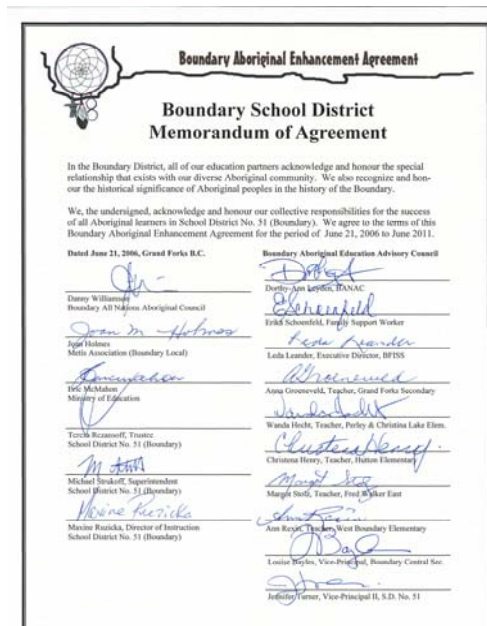 Boundary Aboriginal Enhancement Agreement
Boundary School District
Memorandum of Agreement
In the Boundary District, all of our education partners acknowledge and honour the special
relationship that exists with our diverse Aboriginal community. We also recognize and hon-
our the historical significance of Aboriginal peoples in the history of the Boundary.
We, the undersigned, acknowledge and honour our collective responsibilities for the success
of all Aboriginal learners in School District No. 51 (Boundary). We agree to the terms of this
Boundary Aboriginal Enhancement Agreement for the period of June 21, 2006 to June 2011.
Dated June 21, 2006, Grand Forks B.C.
Danny Williamson
Boundary All Nations Aboriginal Council
Joan M Holmes
Joan Holmes
Metis Association (Boundary Local)
Eric McMahon
Ministry of Education
Teresa Rezansoff, Trustee
School District No. 51 (Boundary)
Michael Strukoff, Superintendent
School District No. 51 (Boundary)
Maxine Ruzicka
Maxine Ruzicka, Director of Instruction
School District No. 51 (Boundary)
Boundary Aboriginal Education Advisory Council
Dorthy-Ann Leyden, BANAC
E Schoenfeld
Erika Schoenfeld, Family Support Worker
Leda Leander
Leda Leander, Executive Director, BFISS
A Groeneveld
Anna Groeneveld, Teacher, Grand Forks Secondary
Wanda Hecht
Wanda Hecht, Teacher, Perley & Christina Lake Elem.
Christena Henry
Christena Henry, Teacher, Hutton Elementary
Margot Stolz
Margot Stolz, Teacher, Fred Walker East
Ann Rexin
Ann Rexin, Teacher, West Boundary Elementary
Louise Bayles, Vice-Principal, Boundary Central Sec.
Jennifer Turner, Vice-Principal II, S.D. No. 51